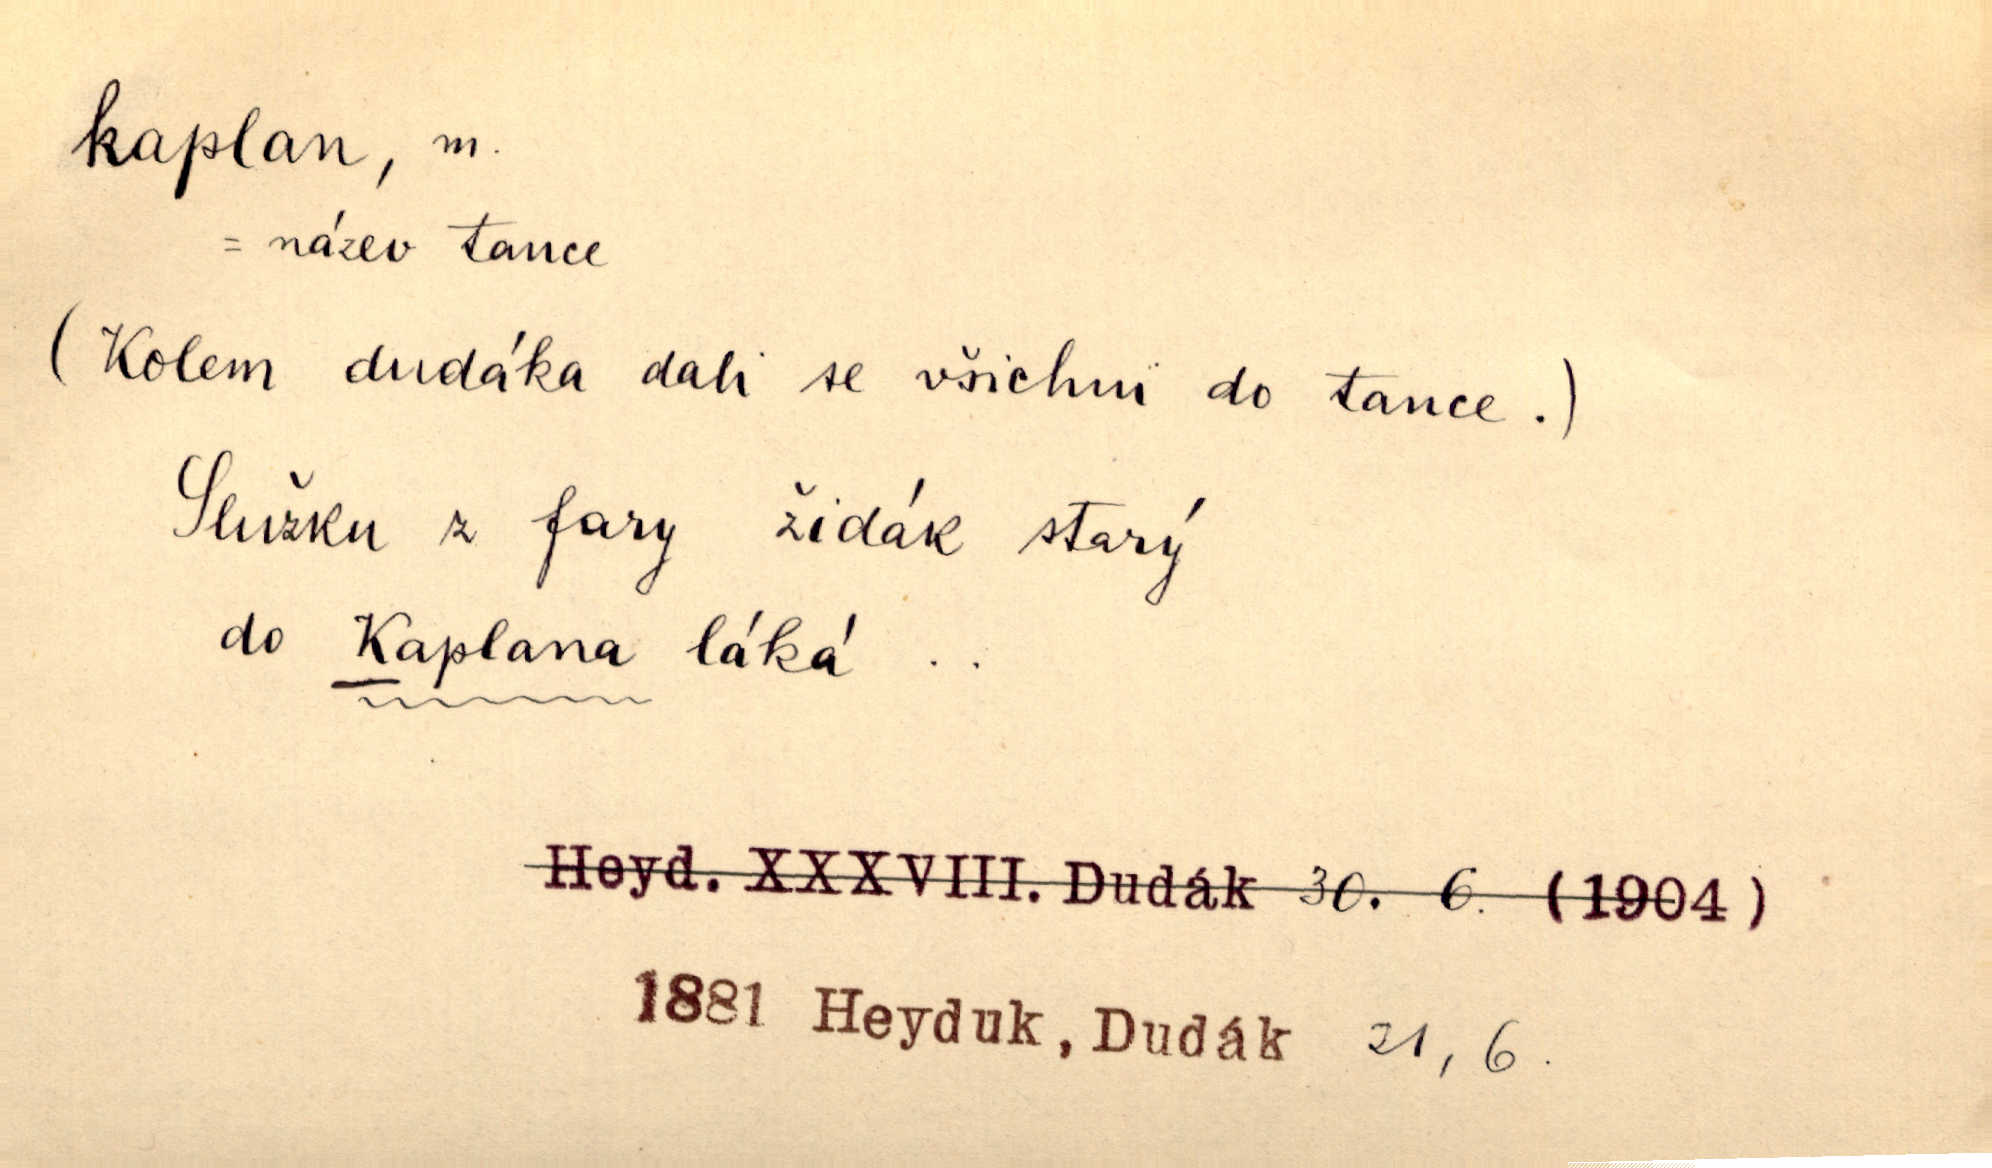 kaplan, m.
= název tance
(Kolem dudáka dali se všichni do tance.)
Služku z fary židák starý
do Kaplana láká ..
Heyd. XXXVIII. Dudák 30. 6. (1904)
1881 Heyduk, Dudák 21, 6.